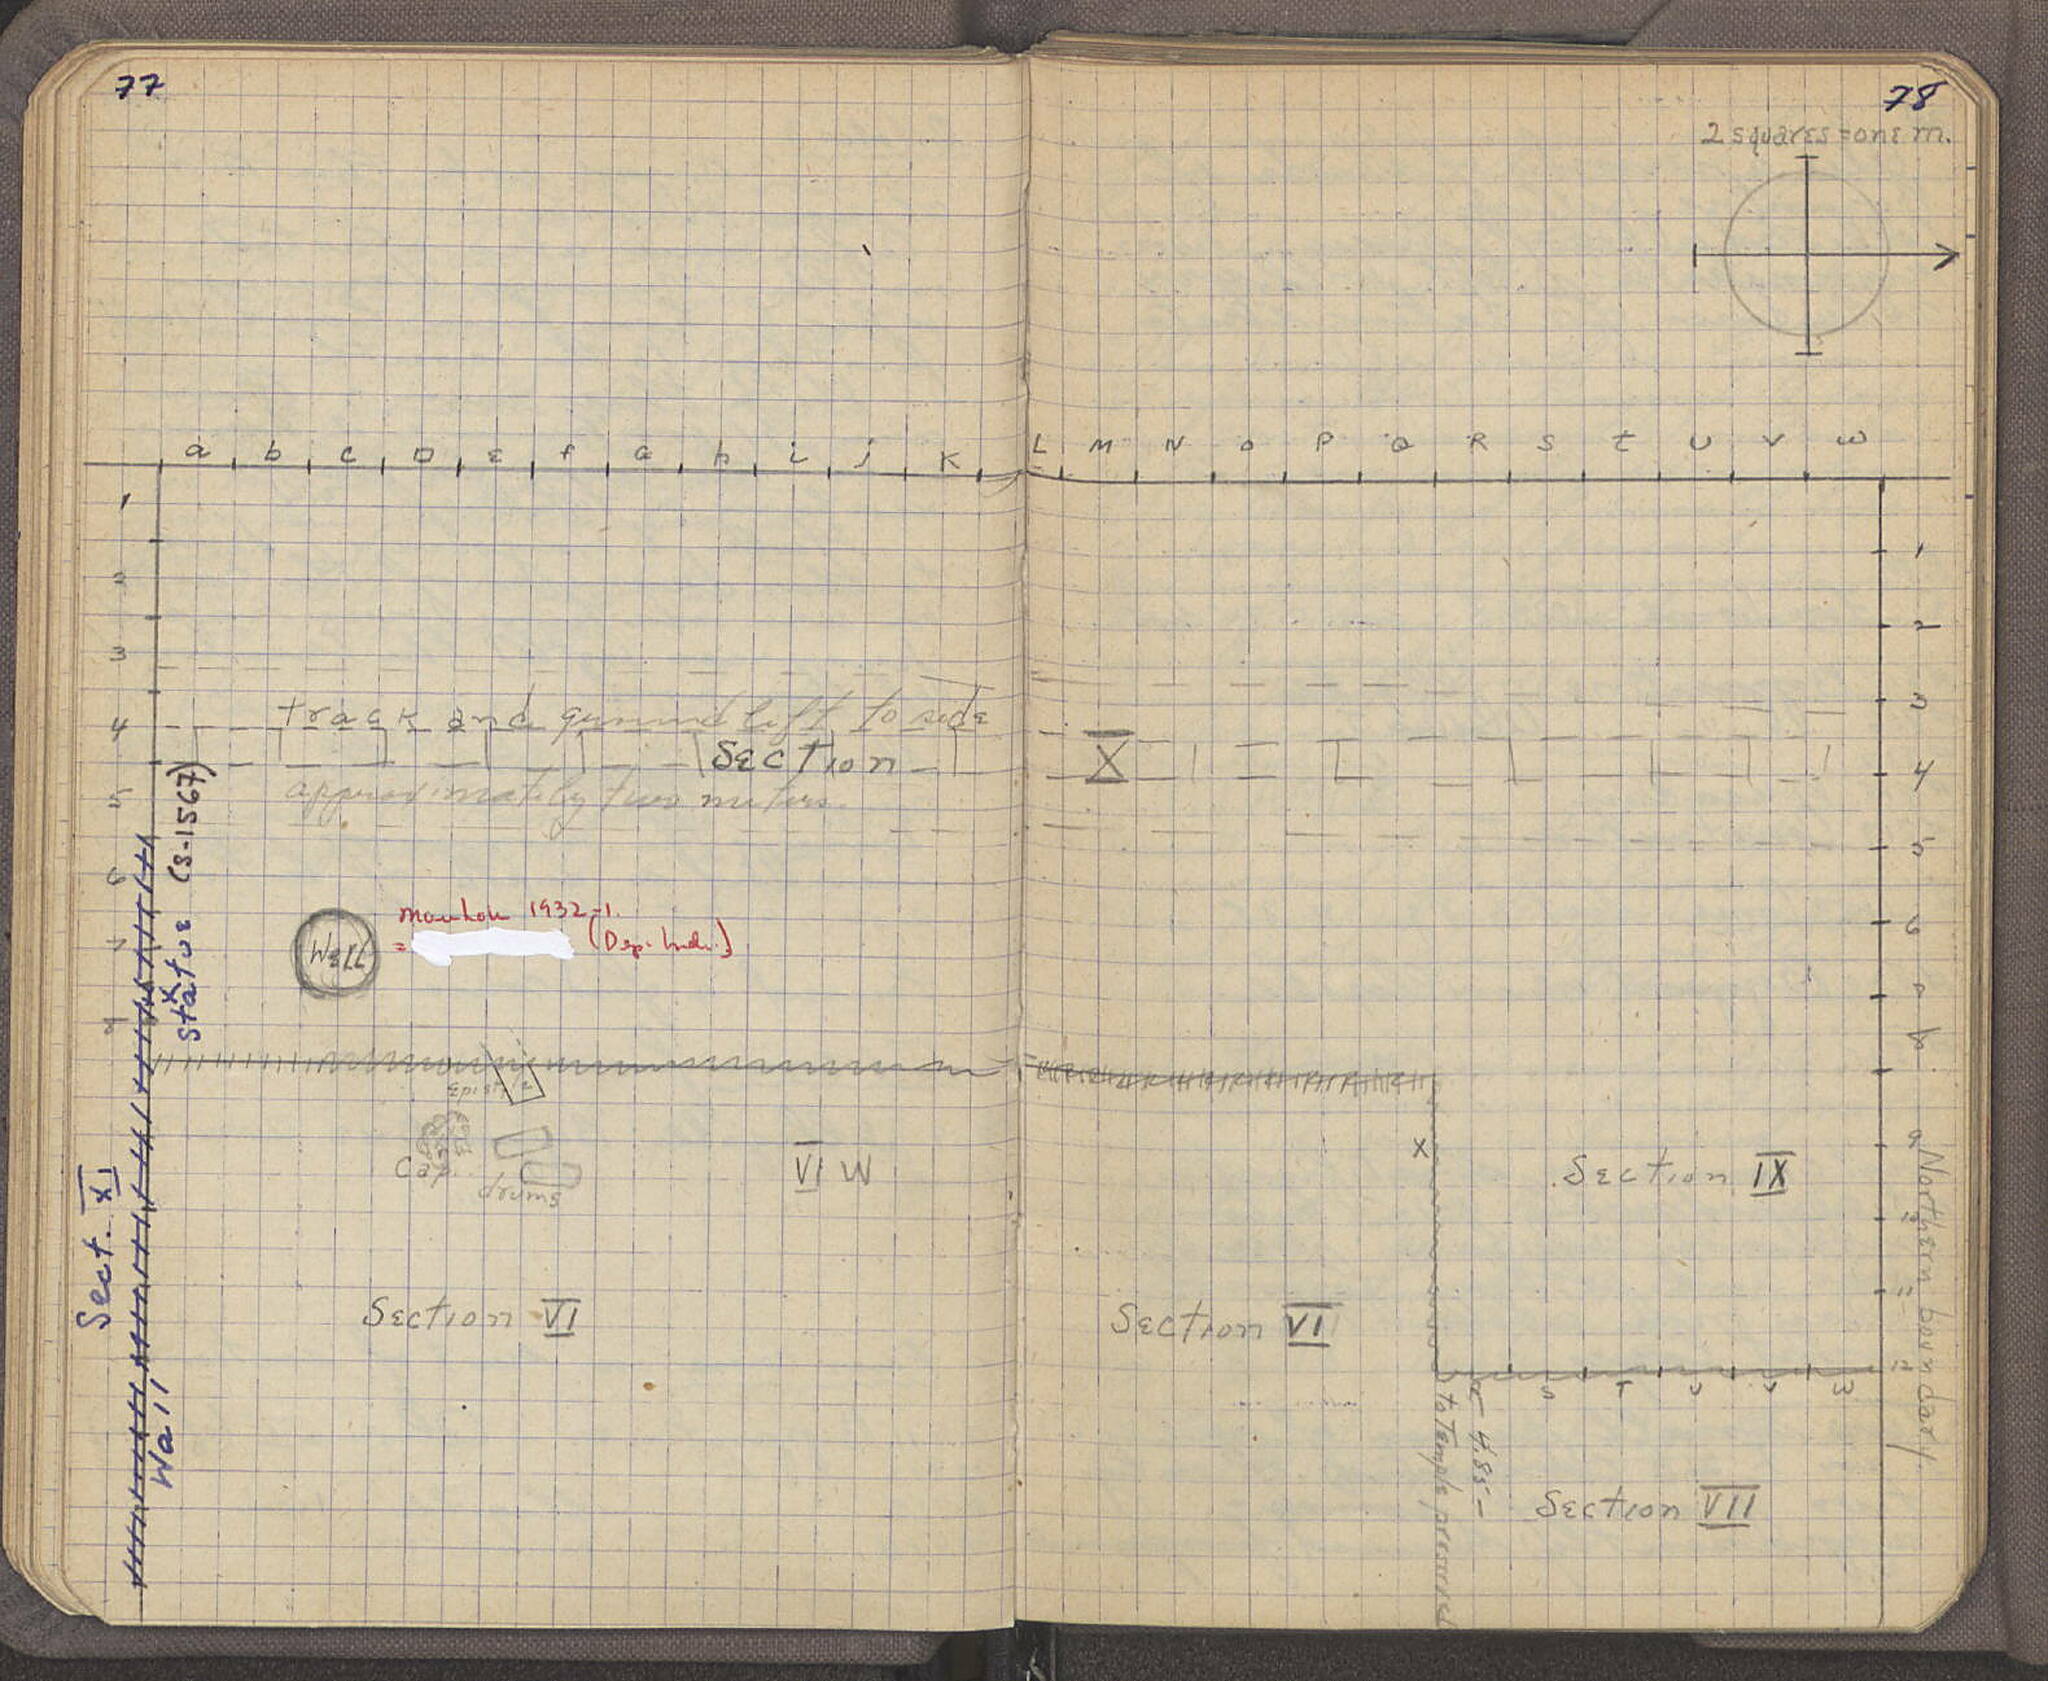 77
a b c D ε f G h i j K
1
2
3
4
5
6
7
8
track and ground left to side
Section
approximately two meters.
Statue (S-1567)
x
Well
manhole 1932-1.
=
Epist
Cap.
drums
VI W
Sect. XI
Wall
Section VI
78
2 squares = one m.
L M N O P Q R S t U V W
X
1
2
3
4
5
6
7
8
9
10
11
12
x
Section IX
Northern boundary
Section VI
S T U V W
4.85
to Temple
Section VII